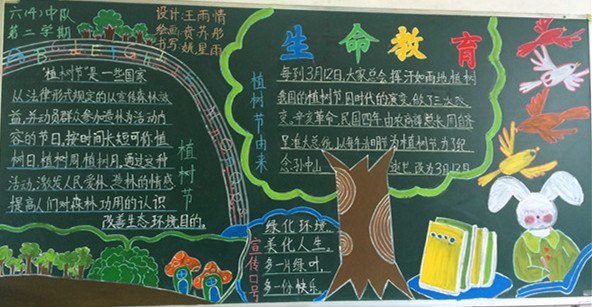 六(4)中队
第二学期
设计:王雨情
绘画:
书写:姚星雨
生命教育
"植树节"是一些国家
以法律形式规定的以宣传森林效
益,并动员群众参加造林为活动内
容的节日,按时间长短可称植
树日,植树周,植树月,通过这种
活动,激发人民爱林、造林的情感
提高人们对森林功用的认识
改善生态环境目的。
植树节
植树节由来
每到3月12日,大家总会挥汗如雨地植树
我国的植树节因时代的演变,
辛亥革命,民国四年由农商部总长周自齐
呈准大总统,以每年清明节为植树节,为了纪
念孙中山 逝世,改为3月12日
宣传口号
绿化环境,
美化人生。
多一片绿叶,
多一份快乐。